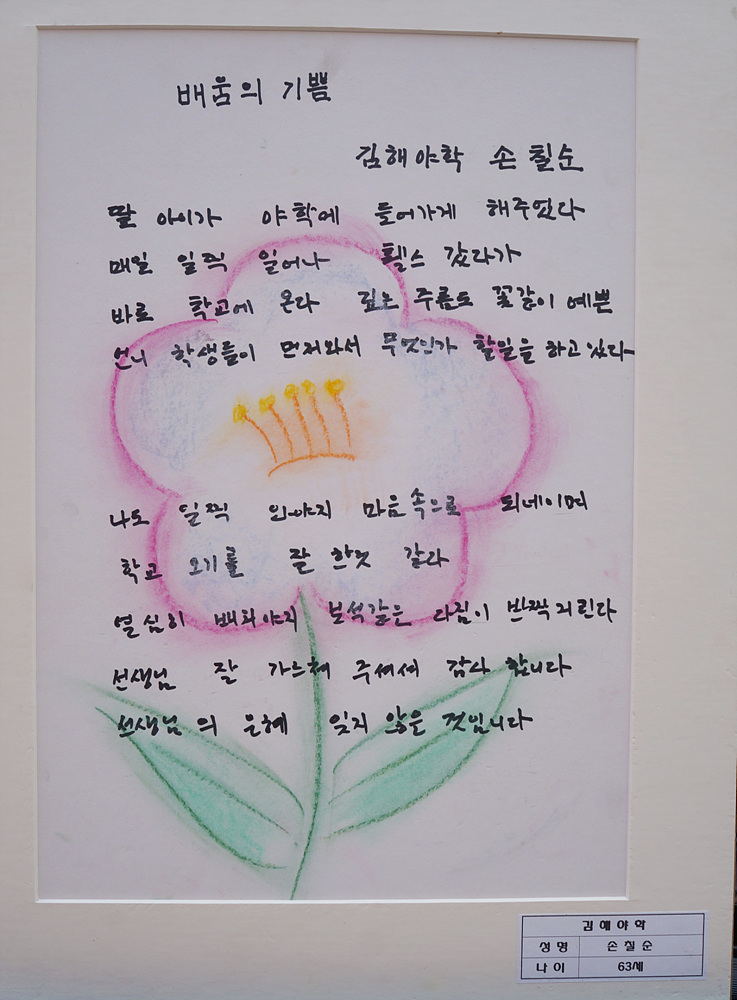 배움의 기쁨
김해야학 손칠순
딸 아이가 야학에 들어가게 해주었다
매일 일찍 일어나 헬스 갔다가
바로 학교에 온다 깊은 주름도 꽃같이 예쁜
언니 학생들이 먼저와서 무엇인가 할일을 하고 있다
나도 일찍 와야지 마음속으로 되네이며
학교 오기를 잘 한것 같다
열심히 배워야지 보석같은 다짐이 반짝거린다
선생님 잘 가르쳐 주셔서 감사 합니다
선생님의 은혜 잊지 않을 것입니다
김해야학
성명 손칠순
나이 63세